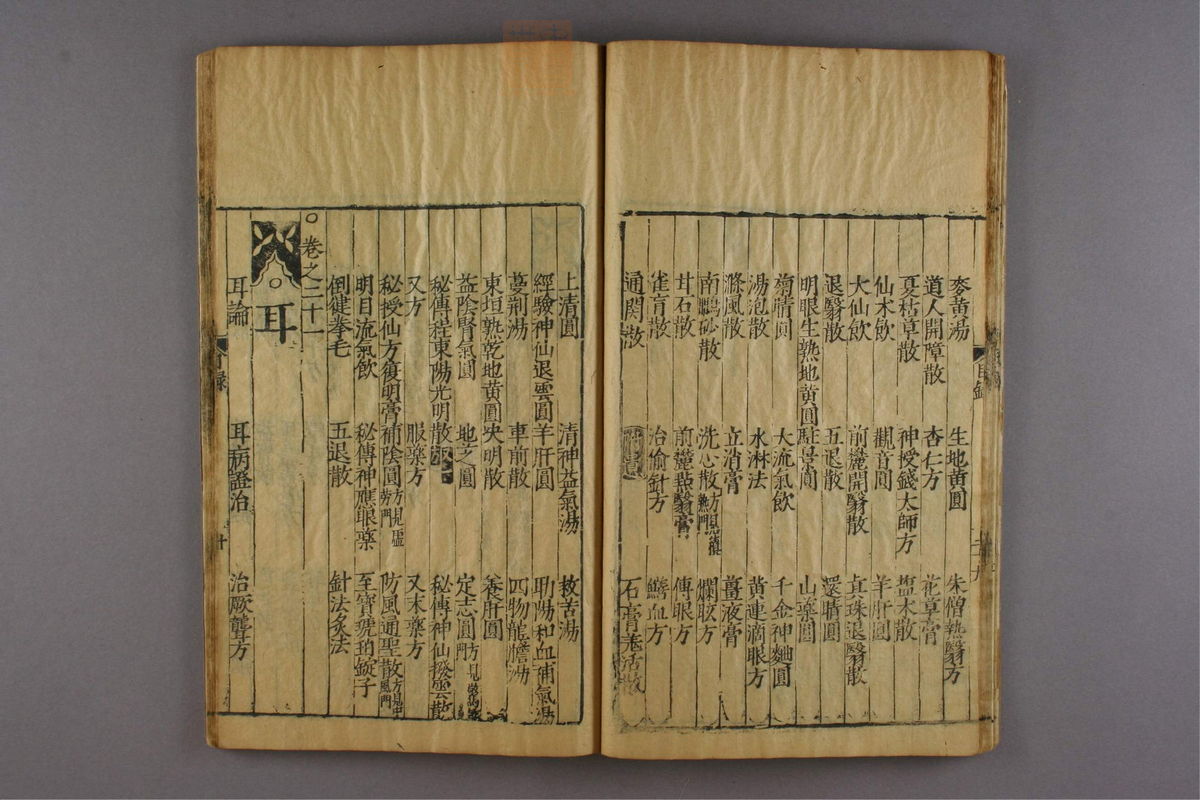 麥黃湯 生地黃圓 朱僧熟翳方
道人開障散 杏仁方 花草膏
夏枯草散 神授錢太師方 鹽术散
仙术飲 觀音圓 羊肝圓
大仙飲 前麓開翳散 真珠退翳散
退翳散 五退散 還睛圓
明眼生熟地黃圓 駐景圓 山藥圓
菊睛圓 大流氣飲 千金神麯圓
湯泡散 水淋法 黃連滴眼方
滌風散 立消膏 薑液膏
南鵬砂散 洗心散 方見積熱門 爛眩方
甘石散 前麓㸃翳膏 傳眼方
雀盲散 治偷針方 鱔血方
通関散 石膏羌活散
上清圓 清神益氣湯 救苦湯
經驗神仙退雲圓 羊肝圓 助陽和血補氣湯
蔓荊湯 車前散 四物龍膽湯
東垣熟乾地黃圓 决明散 養肝圓
益陰腎氣圓 地芝圓 定志圓
秘傳程東陽光明散 秘傳神仙撥雲散
又方 服藥方 又末藥方
秘授仙方復明膏 補陰圓 方見虛勞門 防風通聖散 方見中風門
明目流氣飲 秘傳神應眼藥 至寶琥珀錠子
倒健拳毛 五退散 針法灸法
○卷之二十一
耳
耳論 耳病證治 治厥聾方